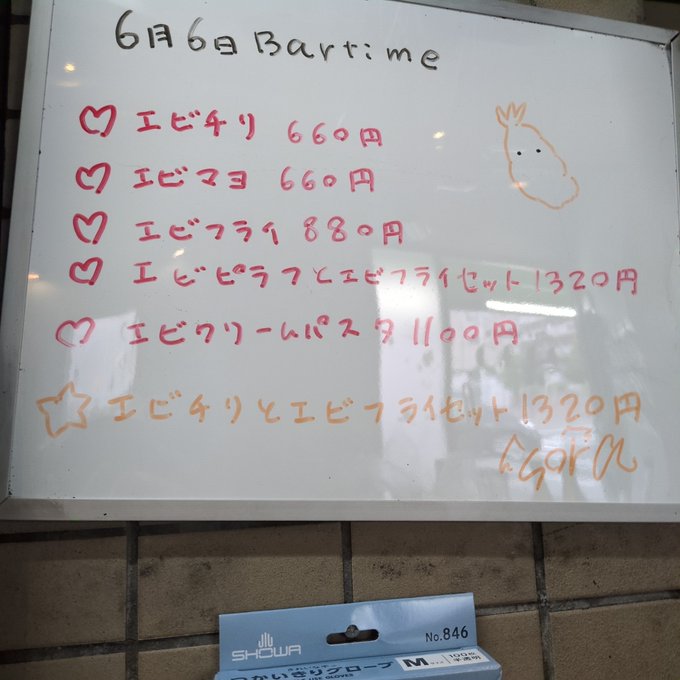 6月6日 Bartime
エビチリ 660円
エビマヨ 660円
エビフライ 880円
エビピラフとエビフライセット 1320円
エビクリームパスタ 1100円
エビチリとエビフライセット 1320円
SHOWA
No.846
つかいきりグローブ
M
100枚
半透明
USE GLOVES